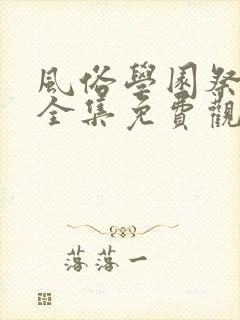 風俗學園祭
全集免費觀
落落一